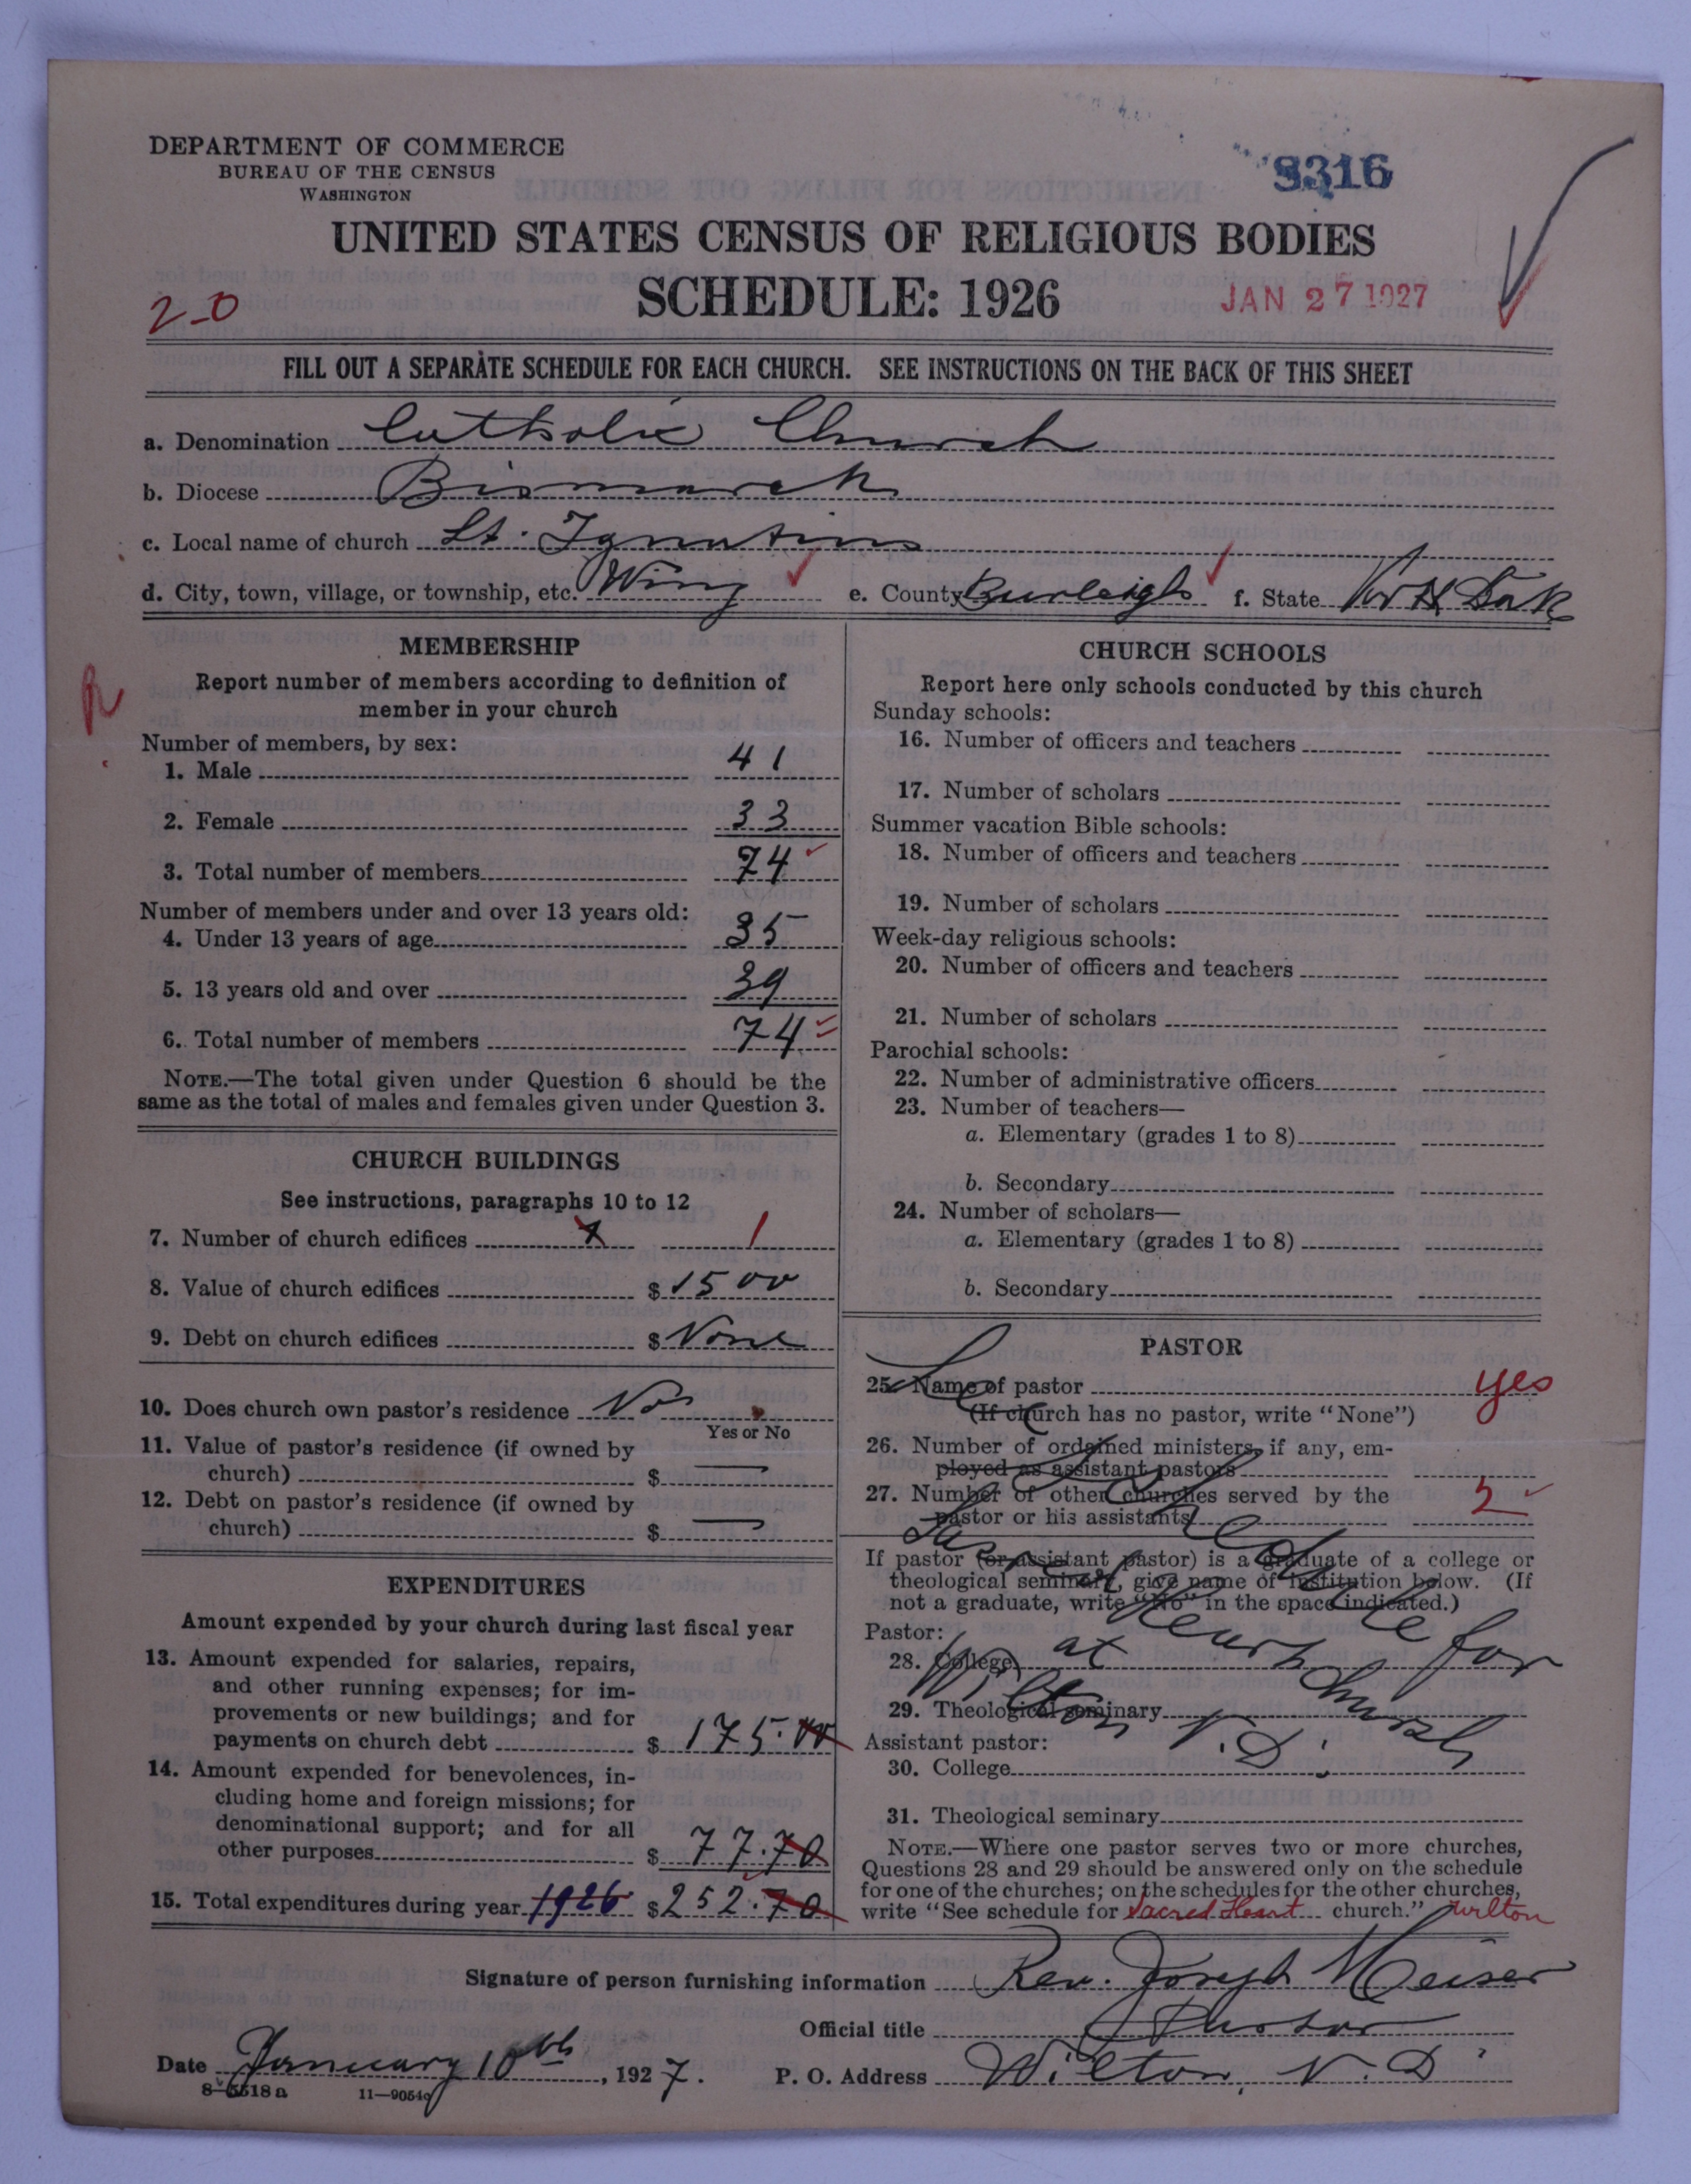 DEPARTMENT OF COMMERCE
BUREAU OF THE CENSUS
WASHINGTON
8316
UNITED STATES CENSUS OF RELIGIOUS BODIES
SCHEDULE: 1926
20
JAN 27 1927
FILL OUT A SEPARATE SCHEDULE FOR EACH CHURCH. SEE INSTRUCTIONS ON THE BACK OF THIS SHEET
a. Denomination Catholic Church
b. Diocese Bismarck
c. Local name of church St. Ignatius
d. City, town, village, or township, etc. Wing e. County Burleigh f. State North Dak
MEMBERSHIP
Report number of members according to definition of
member in your church
R
Number of members, by sex:
1. Male 41
2. Female 33
3. Total number of members 74
Number of members under and over 13 years old:
4. Under 13 years of age 35
5. 13 years old and over 39
6. Total number of members 74
NOTE.—The total given under Question 6 should be the
same as the total of males and females given under Question 3.
CHURCH BUILDINGS
See instructions, paragraphs 10 to 12
7. Number of church edifices x 1
8. Value of church edifices $ 1500
9. Debt on church edifices $ None
10. Does church own pastor's residence No
Yes or No
11. Value of pastor's residence (if owned by
church) $ —
12. Debt on pastor's residence (if owned by
church) $ —
EXPENDITURES
Amount expended by your church during last fiscal year
13. Amount expended for salaries, repairs,
and other running expenses; for im-
provements or new buildings; and for
payments on church debt $ 175.00
14. Amount expended for benevolences, in-
cluding home and foreign missions; for
denominational support; and for all
other purposes $ 77.70
15. Total expenditures during year 1926 $ 252.70
CHURCH SCHOOLS
Report here only schools conducted by this church
Sunday schools:
16. Number of officers and teachers
17. Number of scholars
Summer vacation Bible schools:
18. Number of officers and teachers
19. Number of scholars
Week-day religious schools:
20. Number of officers and teachers
21. Number of scholars
Parochial schools:
22. Number of administrative officers
23. Number of teachers—
a. Elementary (grades 1 to 8)
b. Secondary
24. Number of scholars—
a. Elementary (grades 1 to 8)
b. Secondary
PASTOR
25. Name of pastor yes
(If church has no pastor, write "None")
26. Number of ordained ministers, if any, em-
ployed as assistant pastors
27. Number of other churches served by the
pastor or his assistants 5
If pastor (or assistant pastor) is a graduate of a college or
theological seminary, give name of institution below. (If
not a graduate, write "No" in the space indicated.)
Pastor:
28. College
29. Theological seminary
Assistant pastor:
30. College
31. Theological seminary
See Schedule for
Sacred Heart Church
at Wilton N.D.
NOTE.—Where one pastor serves two or more churches,
Questions 28 and 29 should be answered only on the schedule
for one of the churches; on the schedules for the other churches,
write "See schedule for Sacred Heart church." Wilton
Signature of person furnishing information Rev. Joseph Meiser
Official title Pastor
Date January 10th, 1927. P. O. Address Wilton, N. D.
8—5518a 11—9054